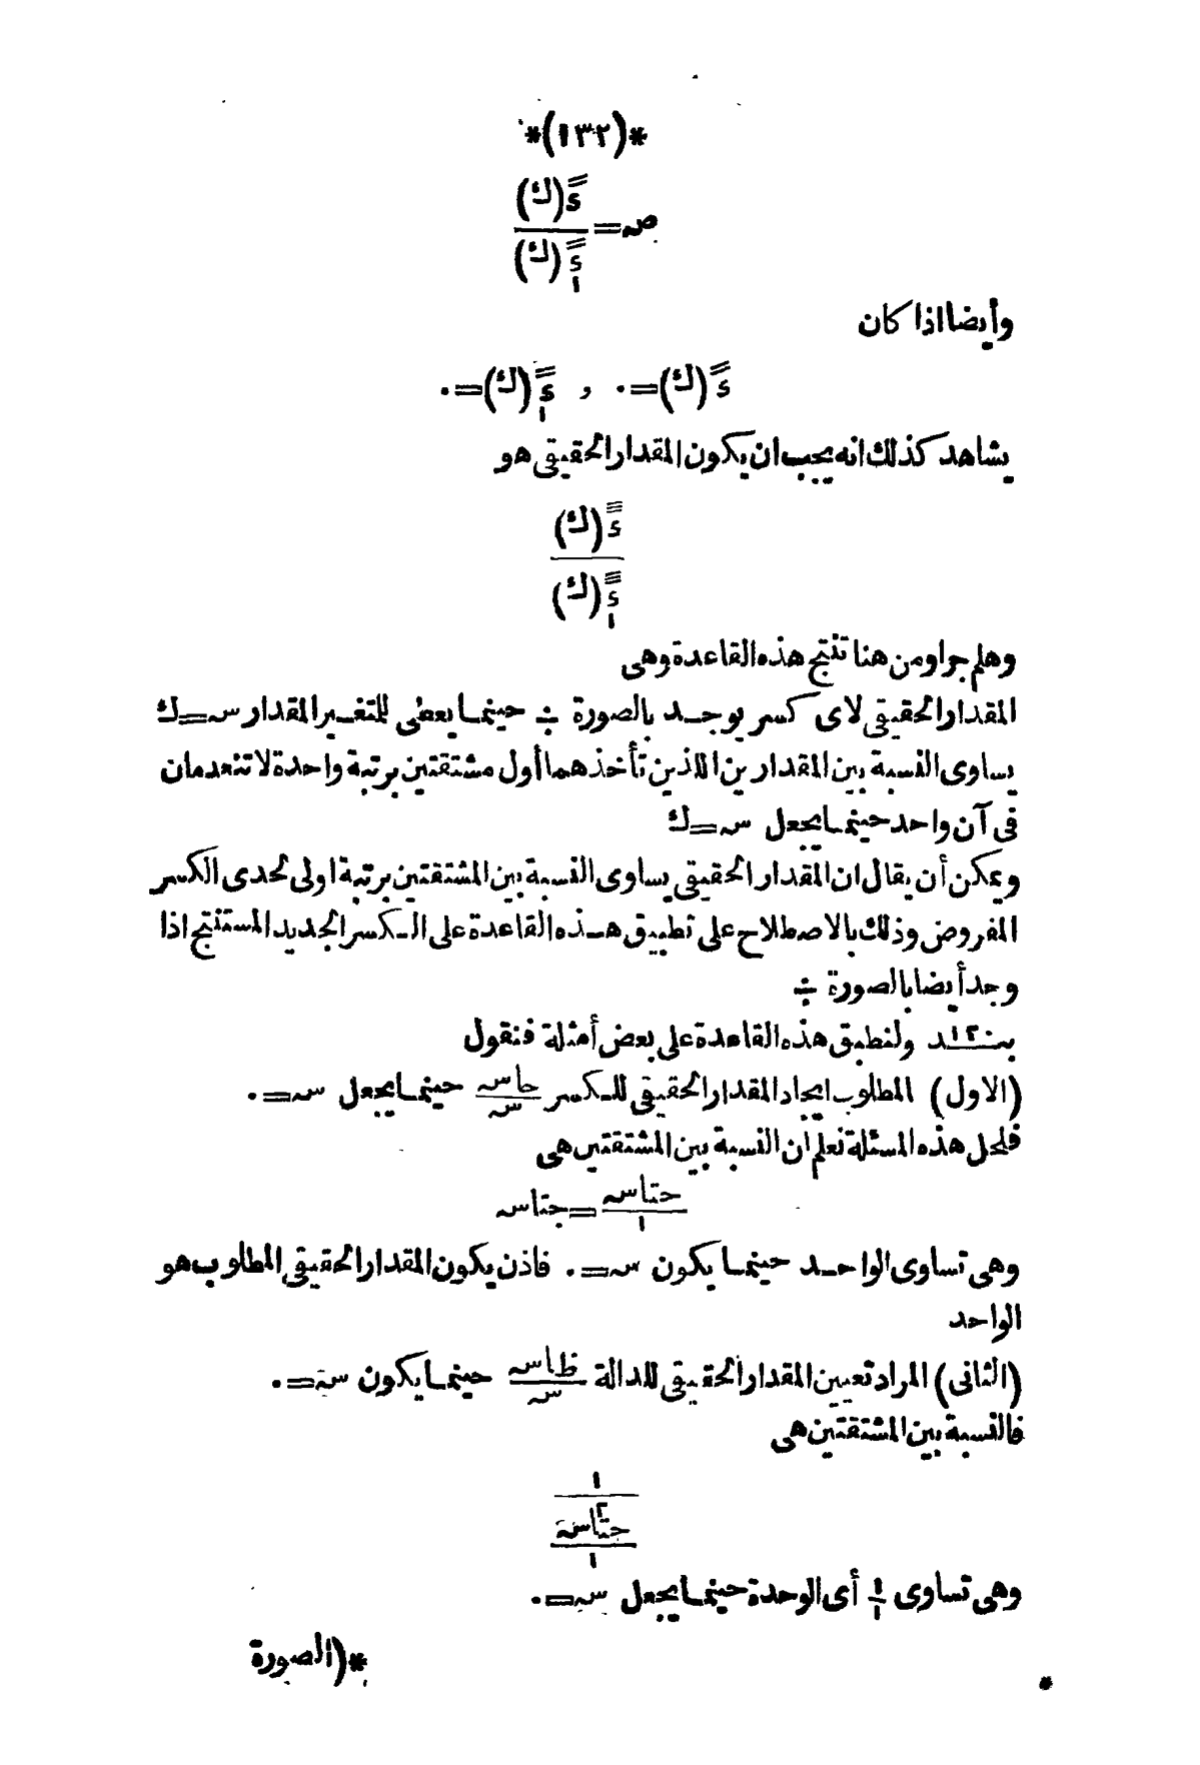 *(١٣٢)*
صہ = ءً̿(ك) / ءً̿١(ك)
وأيضا اذا كان
ءً̿(ك)=٠ , ءً̿١(ك)=٠
يشاهد كذلك انه يجب ان يكون المقدار الحقيقى هو
ءً̿(ك) / ءً̿١(ك)
وهلم جرا ومن هنا تنتج هذه القاعدة وهى
المقدار الحقيقى لاى كسر يوجد بالصورة ٠/٠ حينما يعطى للتغير المقدار سـ=ك
يساوى النسبة بين المقدارين اللذين تأخذهما أول مشتقتين برتبة واحدة لا تنعدمان
فى آن واحد حينما يجعل سـ=ك
ويمكن أن يقال ان المقدار الحقيقى يساوى النسبة بين المشتقتين برتبة اولى لحدى الكسر
المفروض وذلك بالاصطلاح على تطبيق هذه القاعدة على الكسر الجديد المستنتج اذا
وجد أيضا بالصورة ٠/٠
بنـ١٢ـد ولنطبق هذه القاعدة على بعض أمثلة فنقول
(الاول) المطلوب ايجاد المقدار الحقيقى للكسر جاسہ/سہ حينما يجعل سہ=٠
فلحل هذه المسئلة نعلم أن النسبة بين المشتقتين هى
جتاسہ/١ = جتاسہ
وهى تساوى الواحد حينما يكون سہ=٠ فاذن يكون المقدار الحقيقى المطلوب هو
الواحد
(الثانى) المراد تعيين المقدار الحقيقى للدالة ظاسہ/سہ حينما يكون سہ=٠
فالنسبة بين المشتقتين هى
١
جتا٢سہ
١
وهى تساوى ١/١ أى الوحدة حينما يجعل سہ=٠
*(الصورة